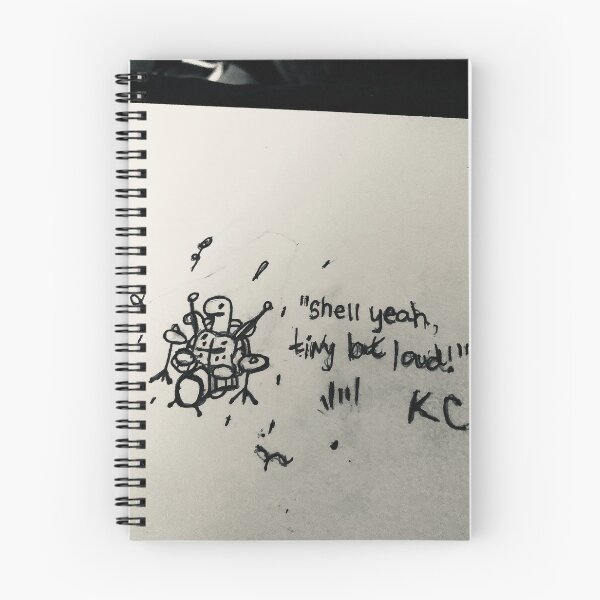 "shell yeah,
tiny but loud!"
KC